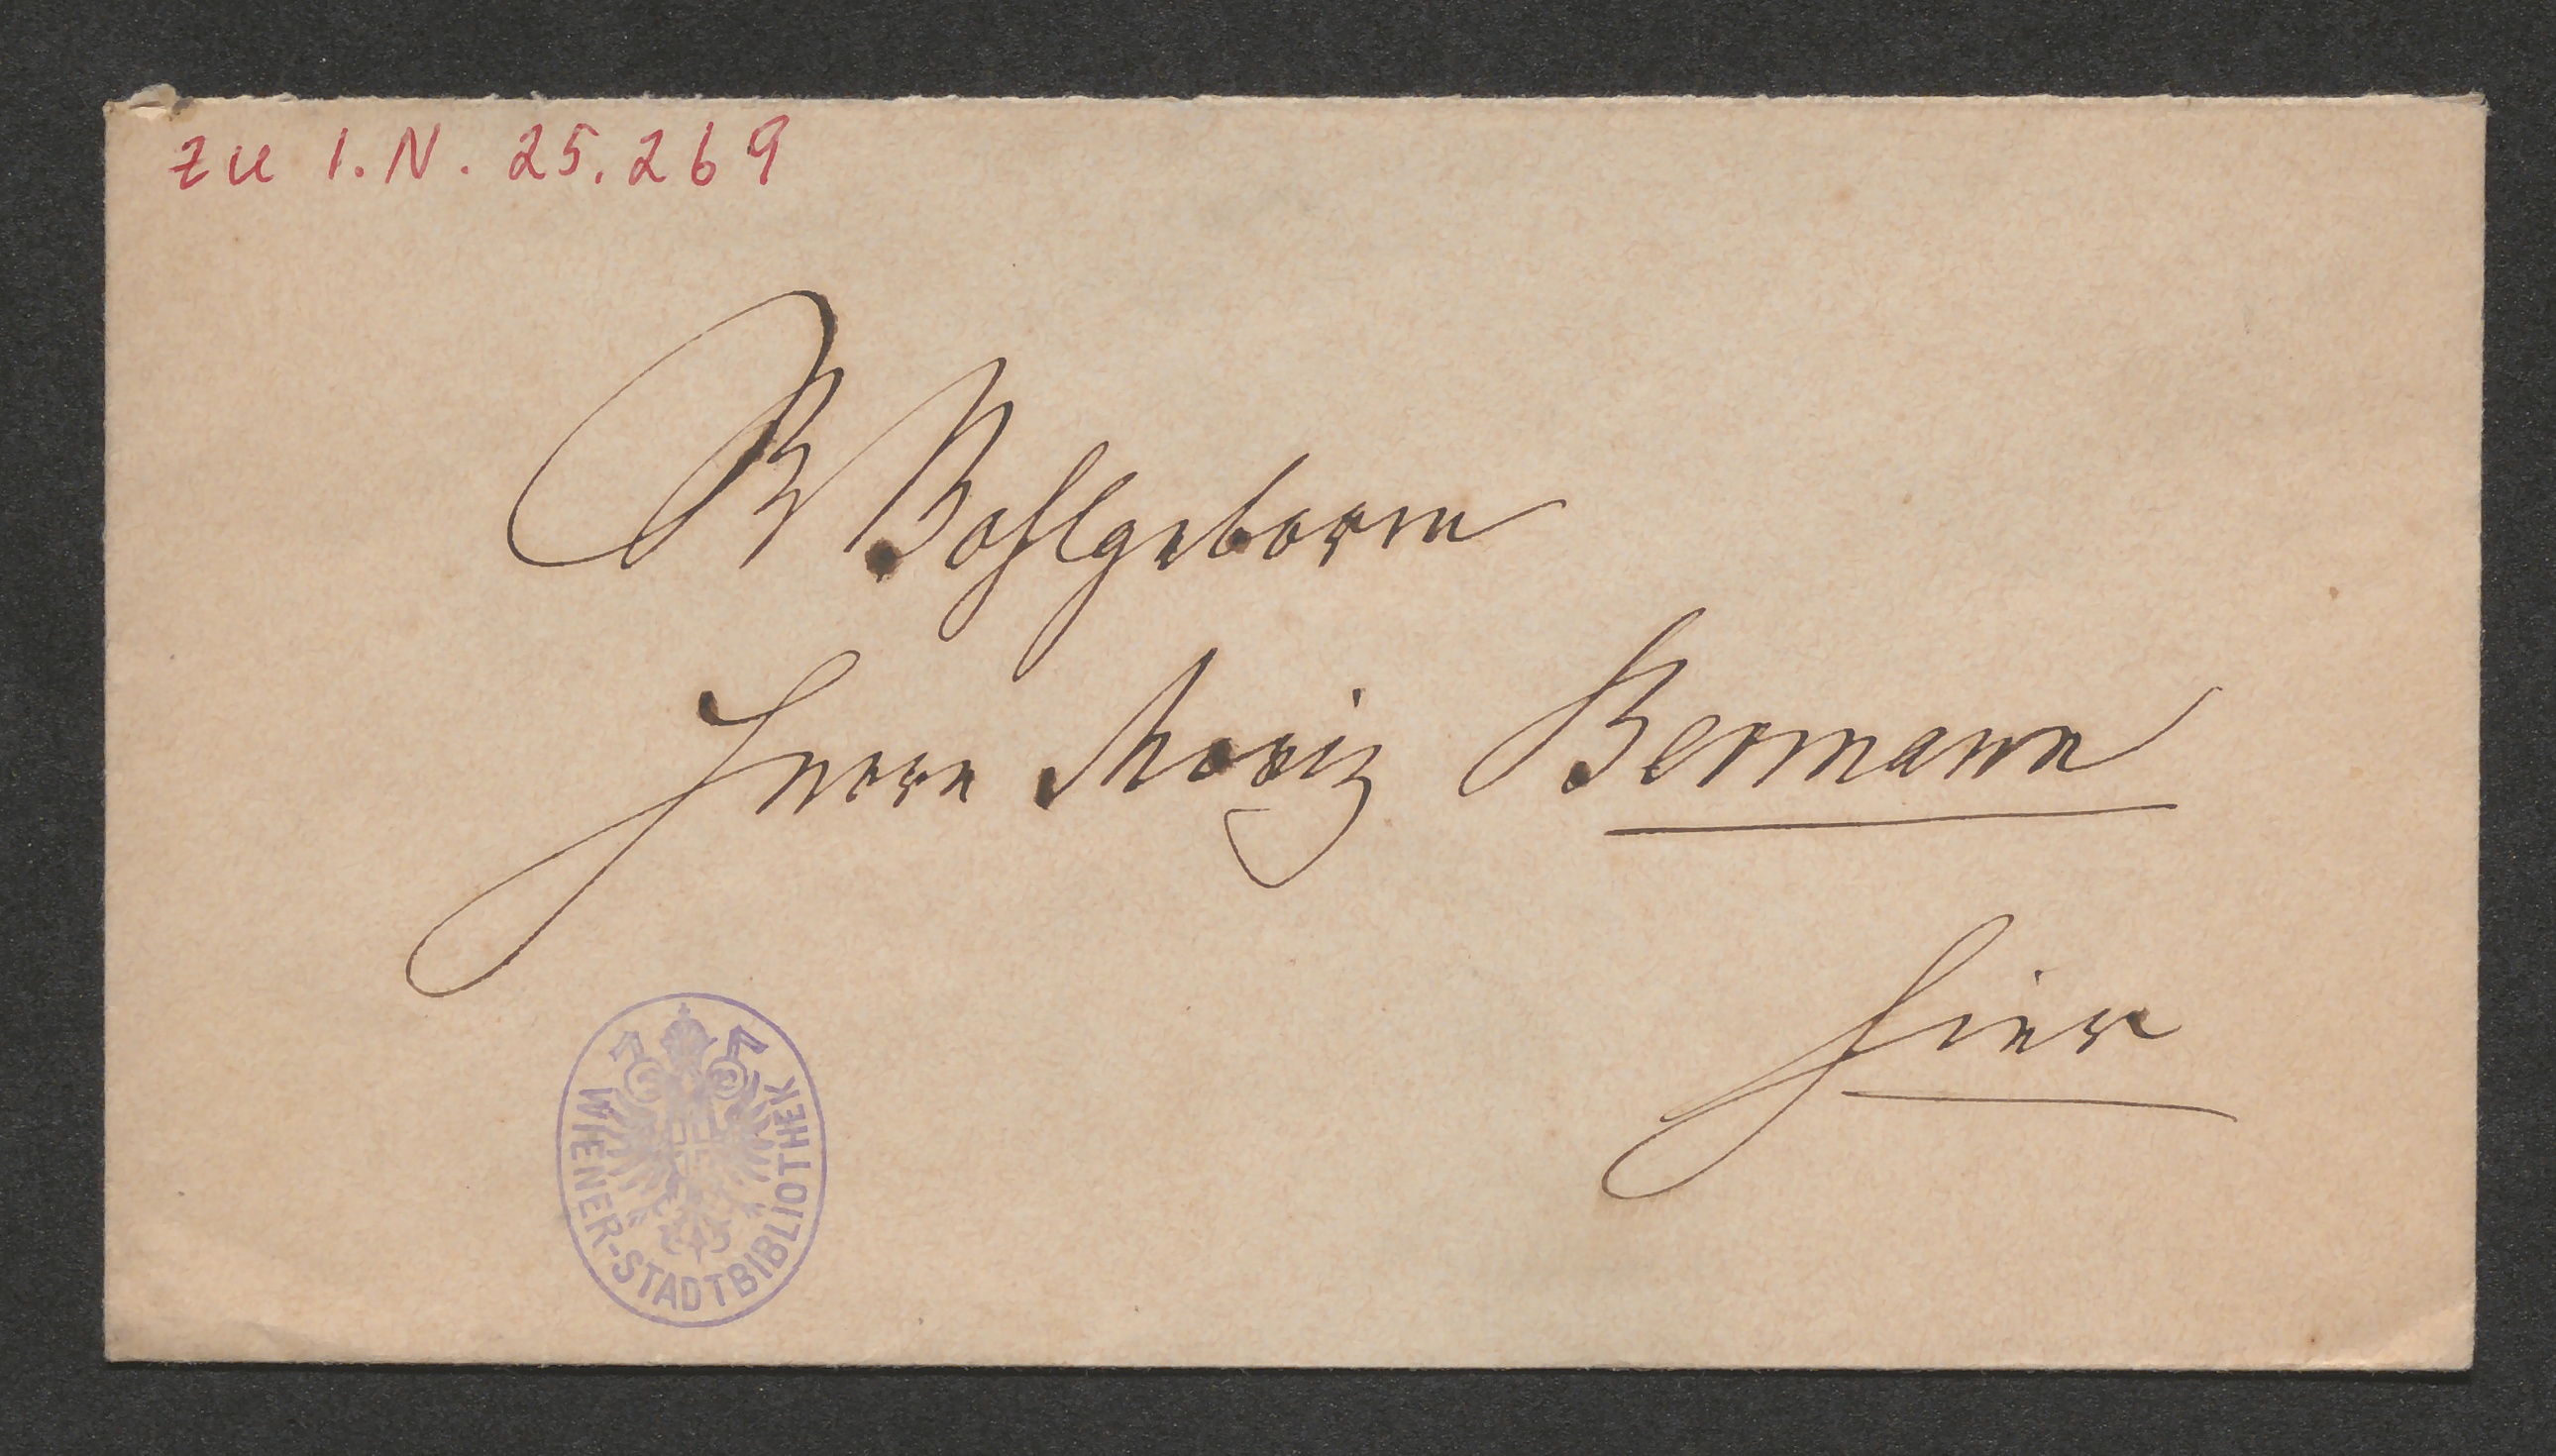 zu I.N. 25.269
Wohlgeboren
Herrn Moriz Bermann
hier
WIENER-STADTBIBLIOTHEK